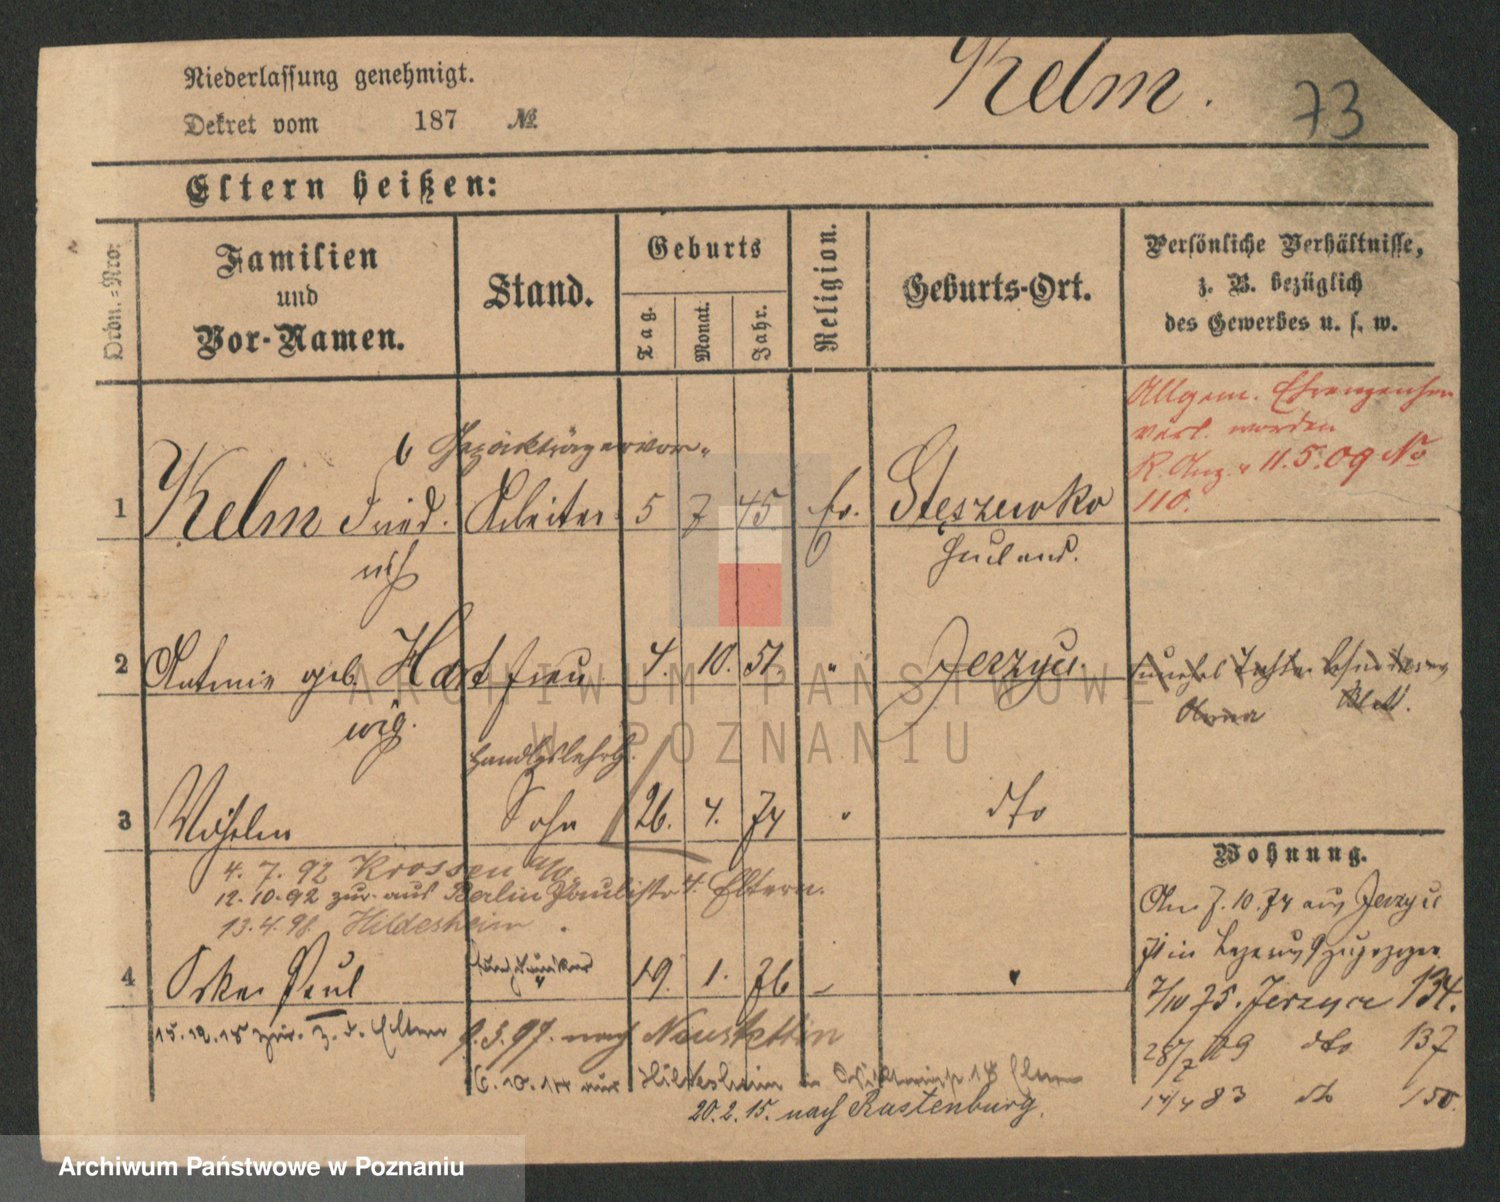 Niederlassung genehmigt.
Kelm. 73
Dekret vom 187 №
Eltern heißen:
Ordn.-Nro.
Familien
und
Vor-Namen.
Stand.
Geburts
Tag.
Monat.
Jahr.
Religion.
Geburts-Ort.
Persönliche Verhältnisse,
z. B. bezüglich
des Gewerbes u. s. w.
Allgem. Ehrenzeichen
verl. worden
R. Anz. v 11.5.09 No
110.
Gepäckträger
1 Kelm Fried- Arbeiter 5 7 45 Ev. Stęszewko
rich Hauland.
2 Antonie geb. Hart Frau 4. 10. 51. " Jerzyce
wig.
Handlgslehrlg.
3 Wilhelm Sohn 26. 4. 74 " dto
4. 7. 92 Krossen a/O.
12.10.92 zur. aus Berlin Paulistr. 4 Eltern.
13.4.98 Hildesheim
4 Oskar Paul 19. 1. 76
15.12.15 zur. z. d. Eltern 9.3.97. nach Neustettin
6.10.14 aus Hildesheim in 18 Eltern
20.2.15. nach Rastenburg.
Wohnung.
Am 7.10.74 aus Jerzyce
zugezogen
7/10 75. Jerzyce 134.
28/2 dto 137
14/4 83 dto 150.
ARCHIWUM PAŃSTWOWE
W POZNANIU
Archiwum Państwowe w Poznaniu